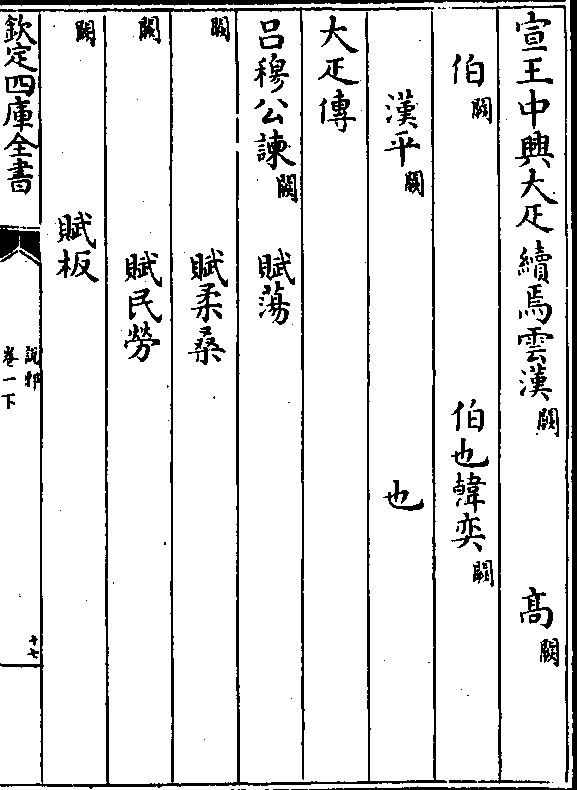 宣王中興大疋續焉雲漢闕　高闕
伯闕　伯也韓奕闕
漢平闕　也
大疋傳
呂穆公諫闕　賦蕩
闕　賦柔桑
闕　賦民勞
闕　賦板
欽定四庫全書　說郛　卷一下　十七